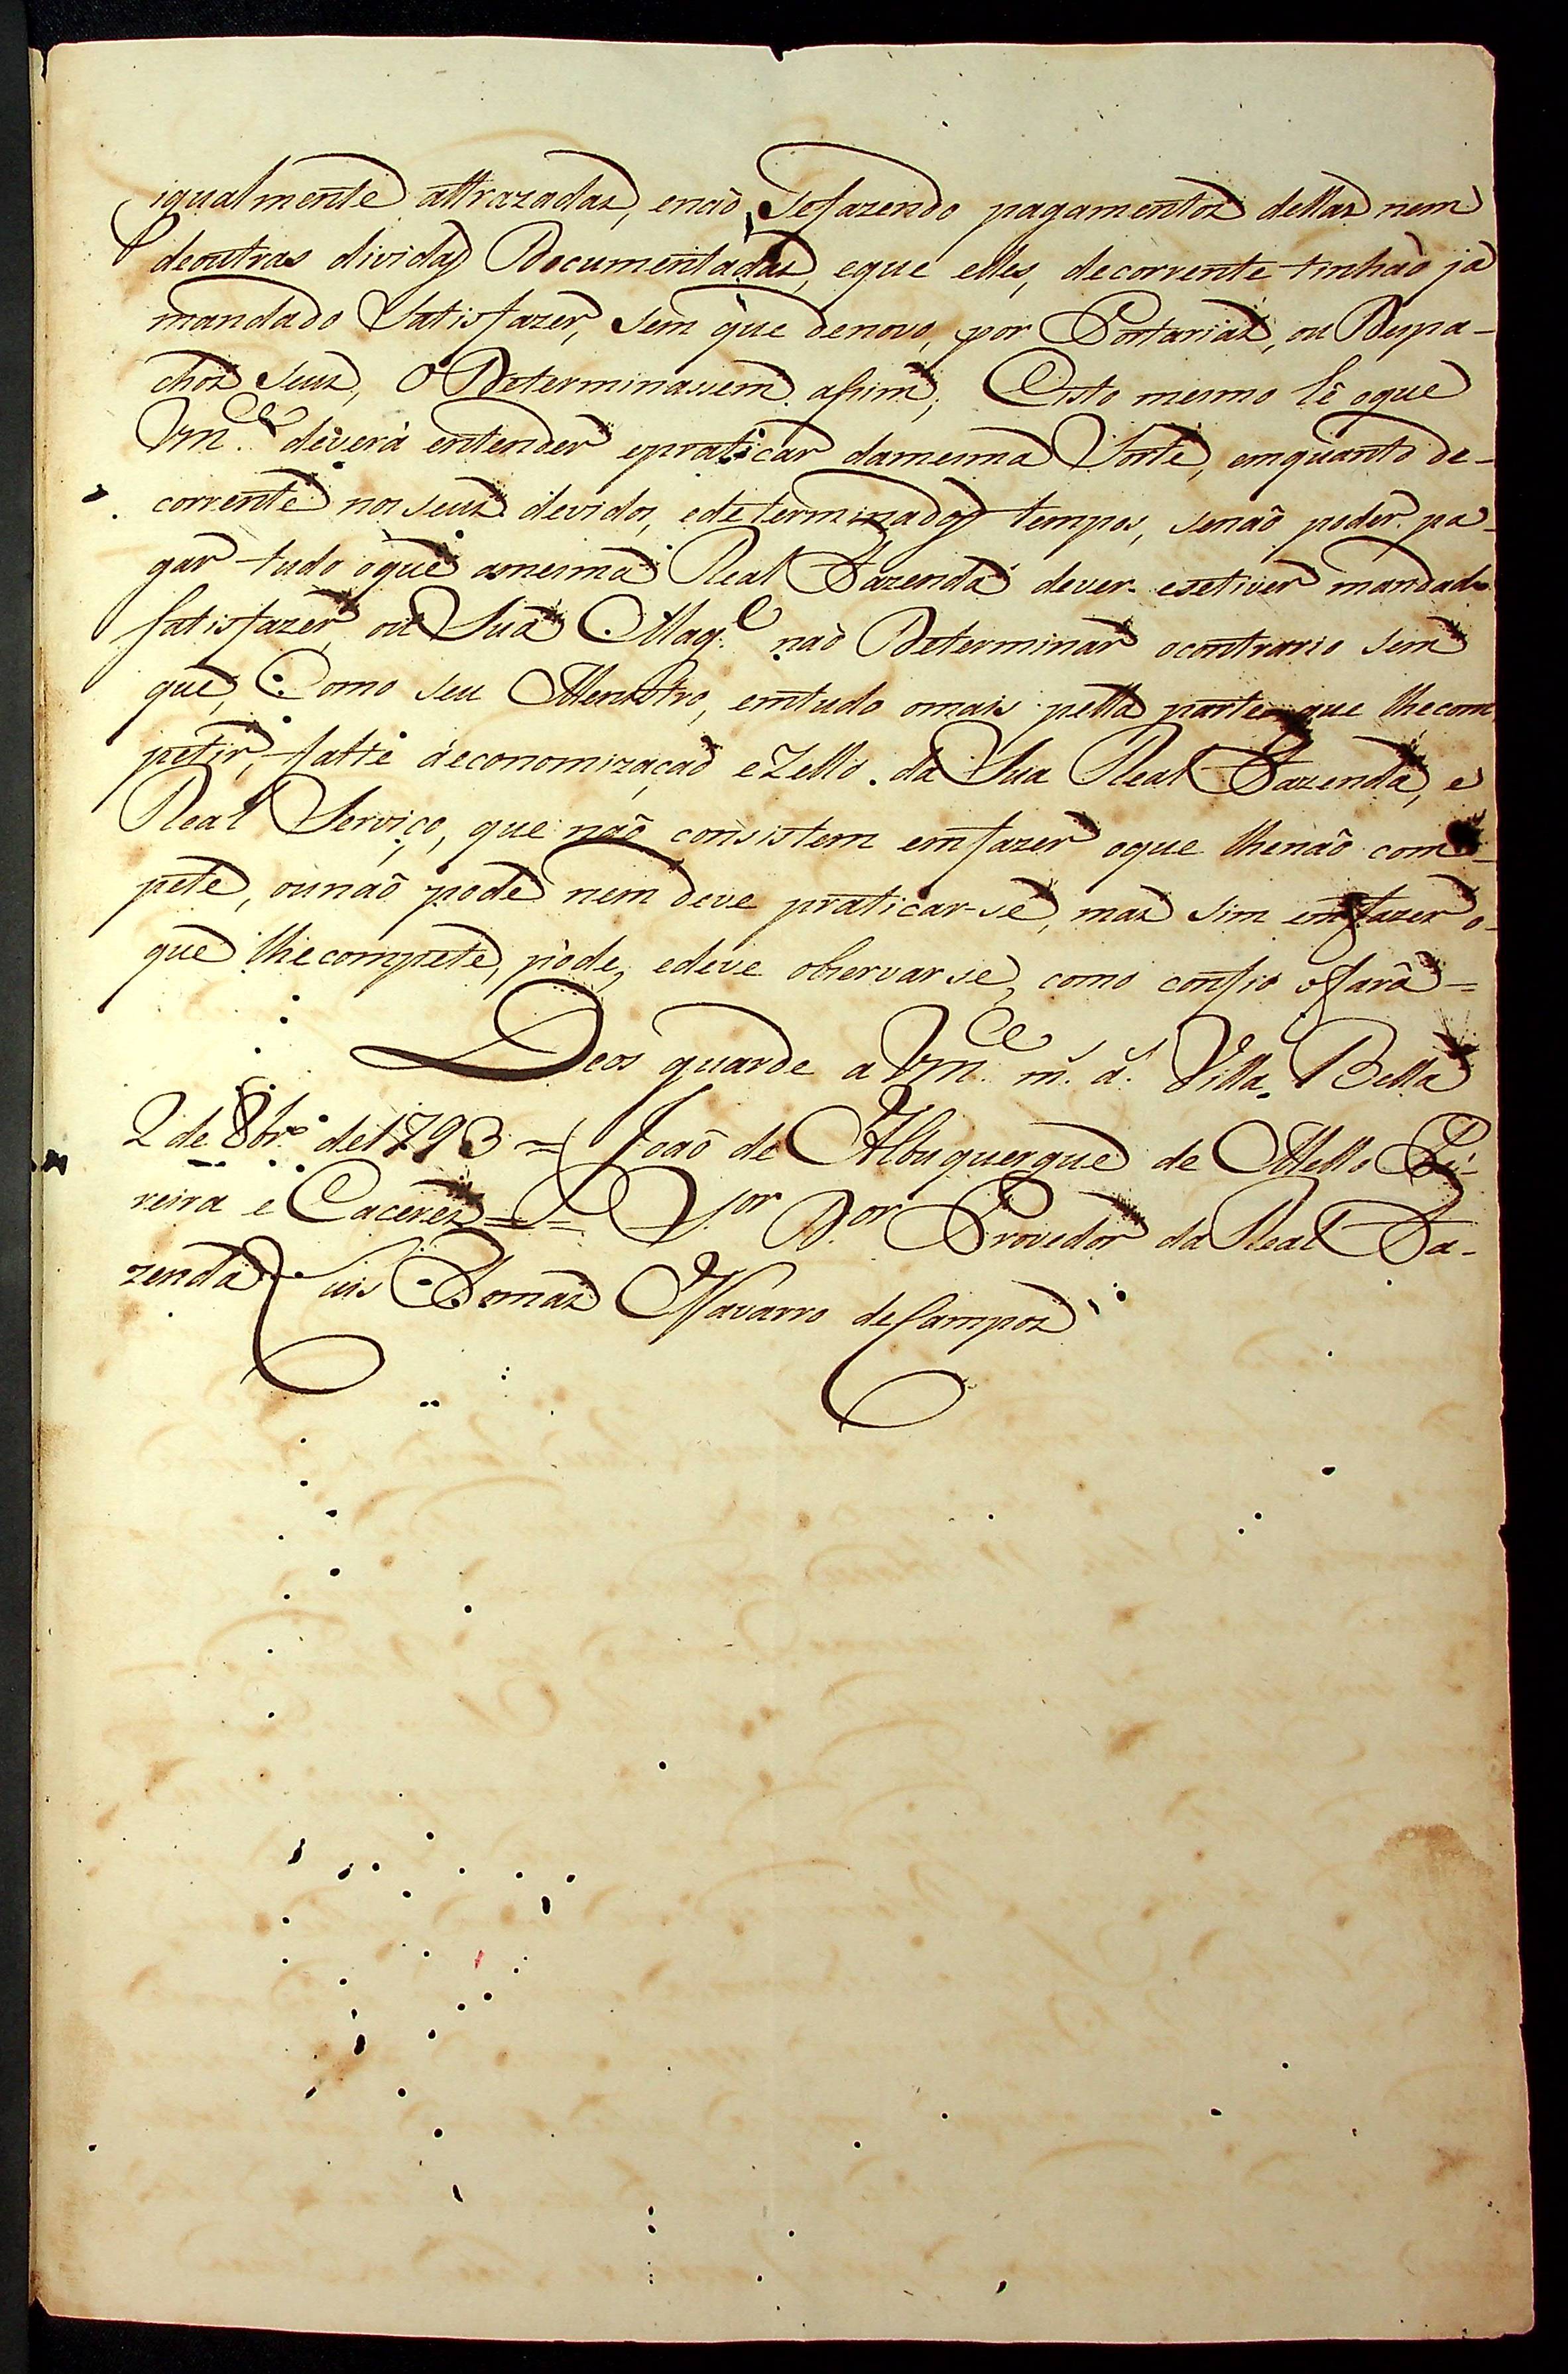 igualmente attrazadas, enaõ sefazendo pagamentos dellas nem
deoutras dividas Documentadas, eque elles, decorrente tinhaõ já
mandado Satisfazer, sem que denovo, por Portarias, ou Despa-
chos seus, o Determinassem assim; Eisto mesmo hé oque
Vm.ce deverá entender epraticar damesma Sorte, emquanto de-
corrente nos seus devidos, edeterminados tempos, senaõ poder pa-
gar tudo oque amesma Real Fazenda dever eestiver mandado
satisfazer, ou Sua Mag.e naõ Determinar ocontrario sem
que, Como seu Menistro, emtudo omais pella parte que lhecom
petir, falte áeconomizaçaõ eZello da Sua Real Fazenda, e
Real Serviço, que naõ consistem emfazer oque lhenaõ com-
pete, ounaõ pode nem deve praticar-se, mas sim emfazer o-
que lhecompete, pòde, edeve observarse, como confio ofará =
Deos guarde a Vm.ce m.s a.s Villa Bella
2 de 8br.o de1793 = Joaõ de Albuquerque de Mello Pe-
reira e Caceres = S.or D.or Provedor da Real Fa-
zenda Luis Thomas Navarro deCampos